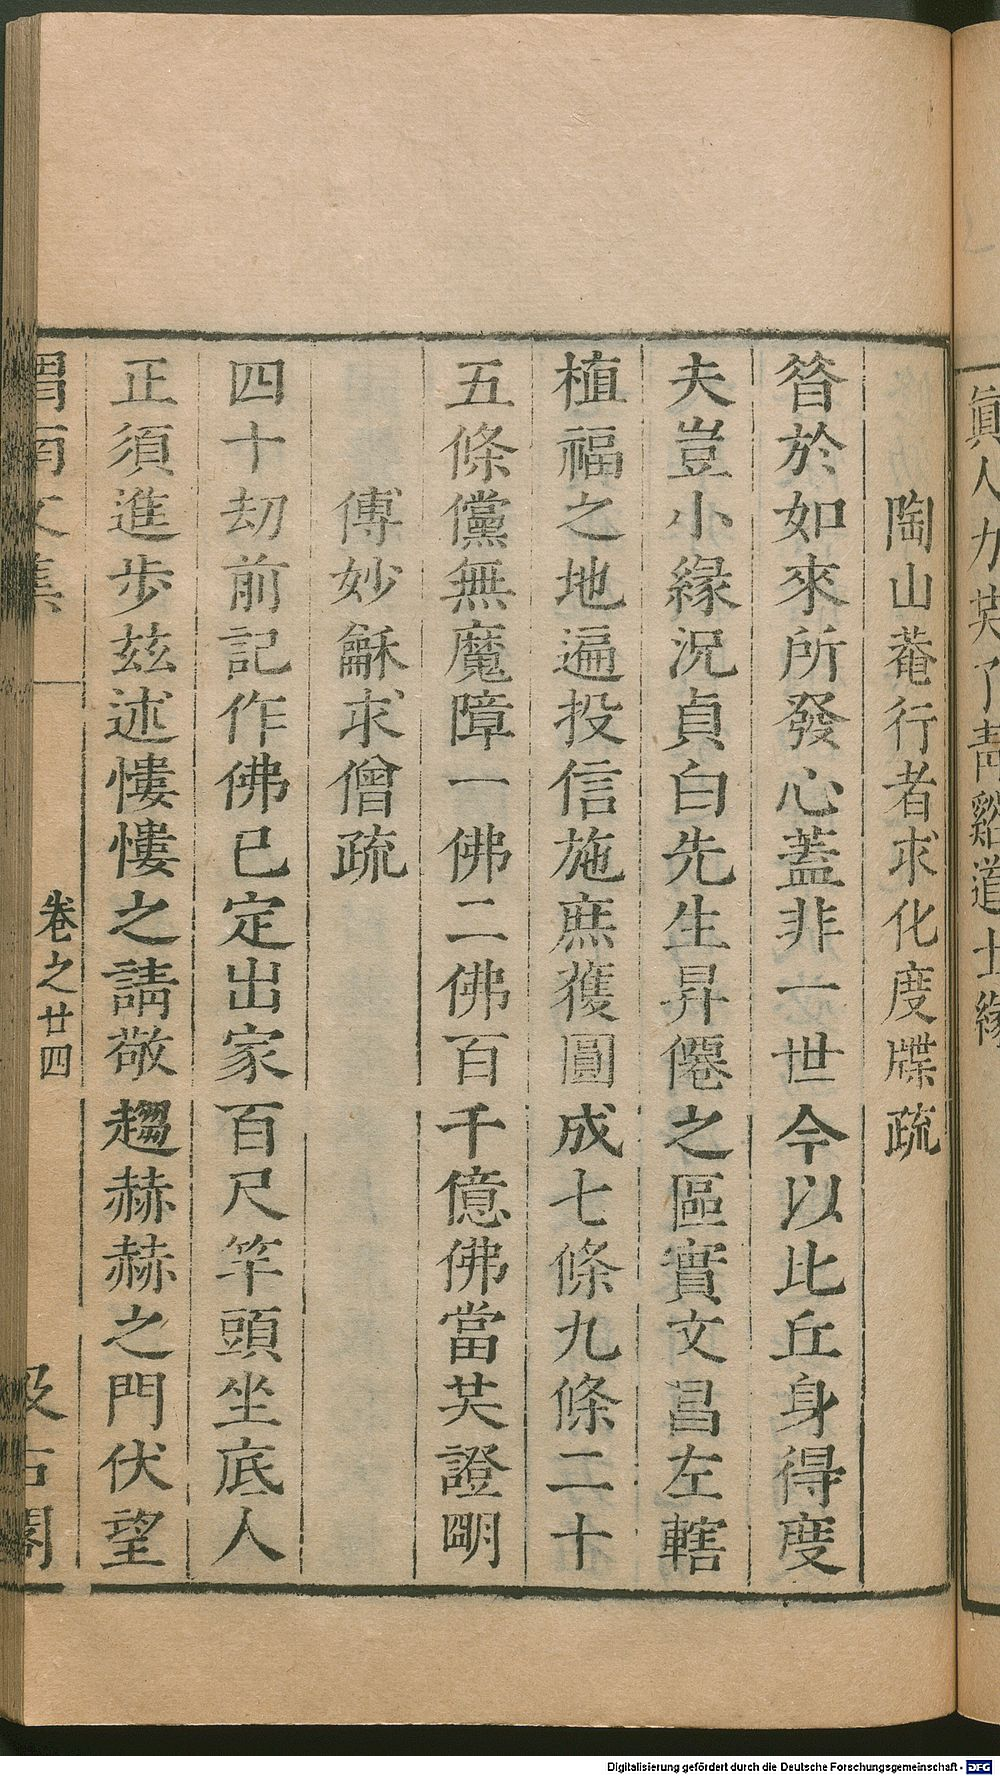 眞人力
道士緣
陶山菴行者求化度牒疏
昝於如來所發心蓋非一世今以比丘身得度
夫豈小緣況貞白先生昇僊之區實文昌左轄
植福之地遍投信施庶獲圓成七條九條二十
五條儻無魔障一佛二佛百千億佛當共證朙
傳妙龢求僧疏
四十刧前記作佛已定出家百尺竿頭坐底人
正須進步玆述慺慺之請敬趨赫赫之門伏望
渭南文集
卷之廿四
汲古閣
Digitalisierung gefördert durch die Deutsche Forschungsgemeinschaft - DFG